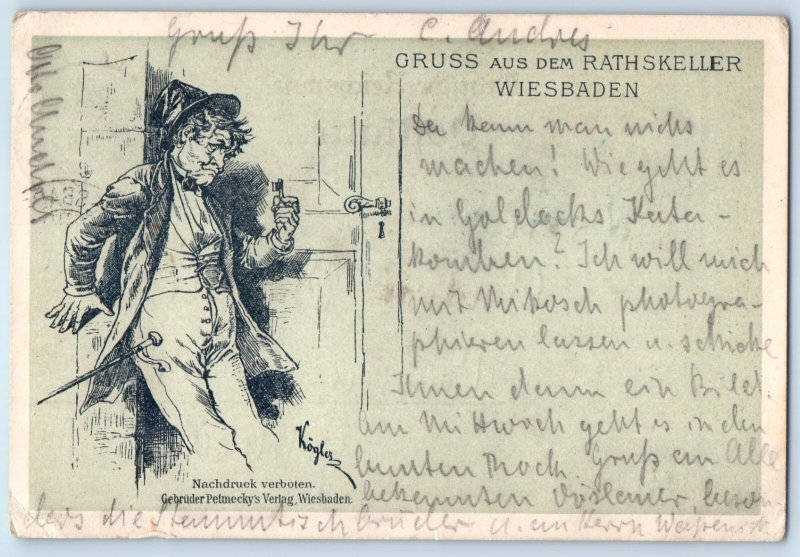 Gruß Ihr C. Andres
GRUSS AUS DEM RATHSKELLER
WIESBADEN
Da kann man nichs
machen! Wie geht es
in Goldecks Kata-
komben? Ich will mich
mit Mikosch photogra-
phieren lassen u. schicke
Ihnen dann ein Bild.
Am Mittwoch geht es in den
bunten Rock. Gruß an Alle
bekannten, beson-
ders die Stammtischbrüder u. an Herrn
Kögler
Nachdruck verboten.
Gebrüder Petmecky's Verlag, Wiesbaden.